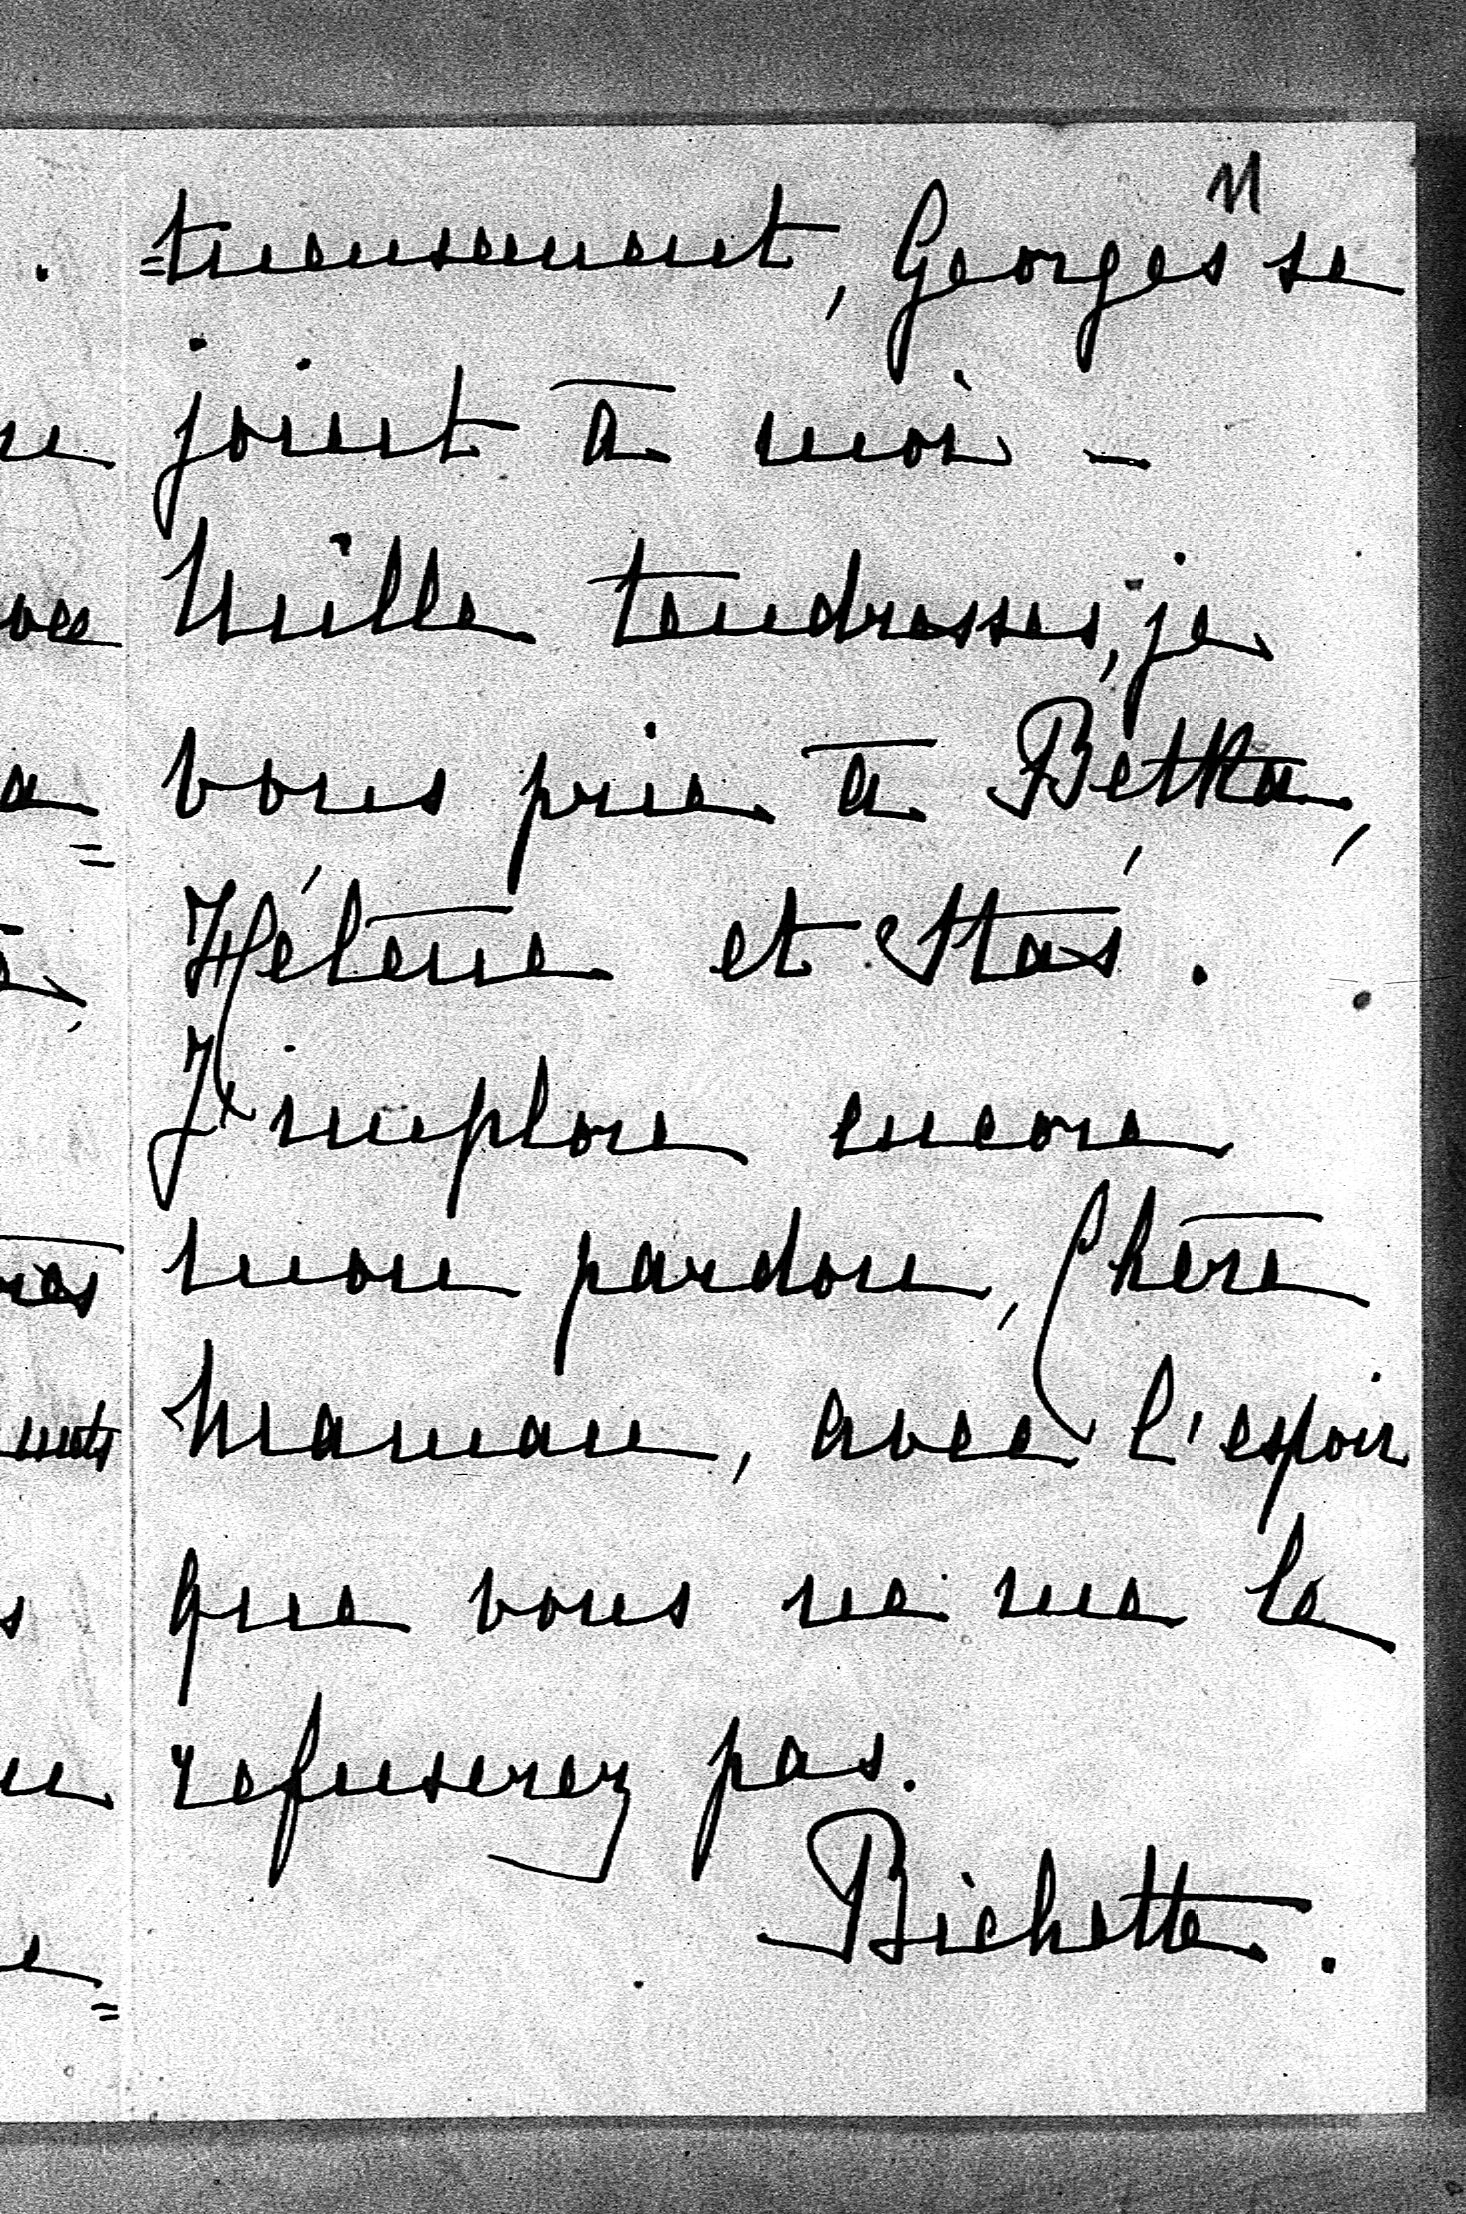 =tueusement, Georges se
joint à moi –
Mille tendresses, je
vous prie à Betka,
Hélène et Staś.
J'implore encore
mon pardon, Chère
Maman, avec l'espoir
que vous ne me le
refuserez pas.
Bichette.